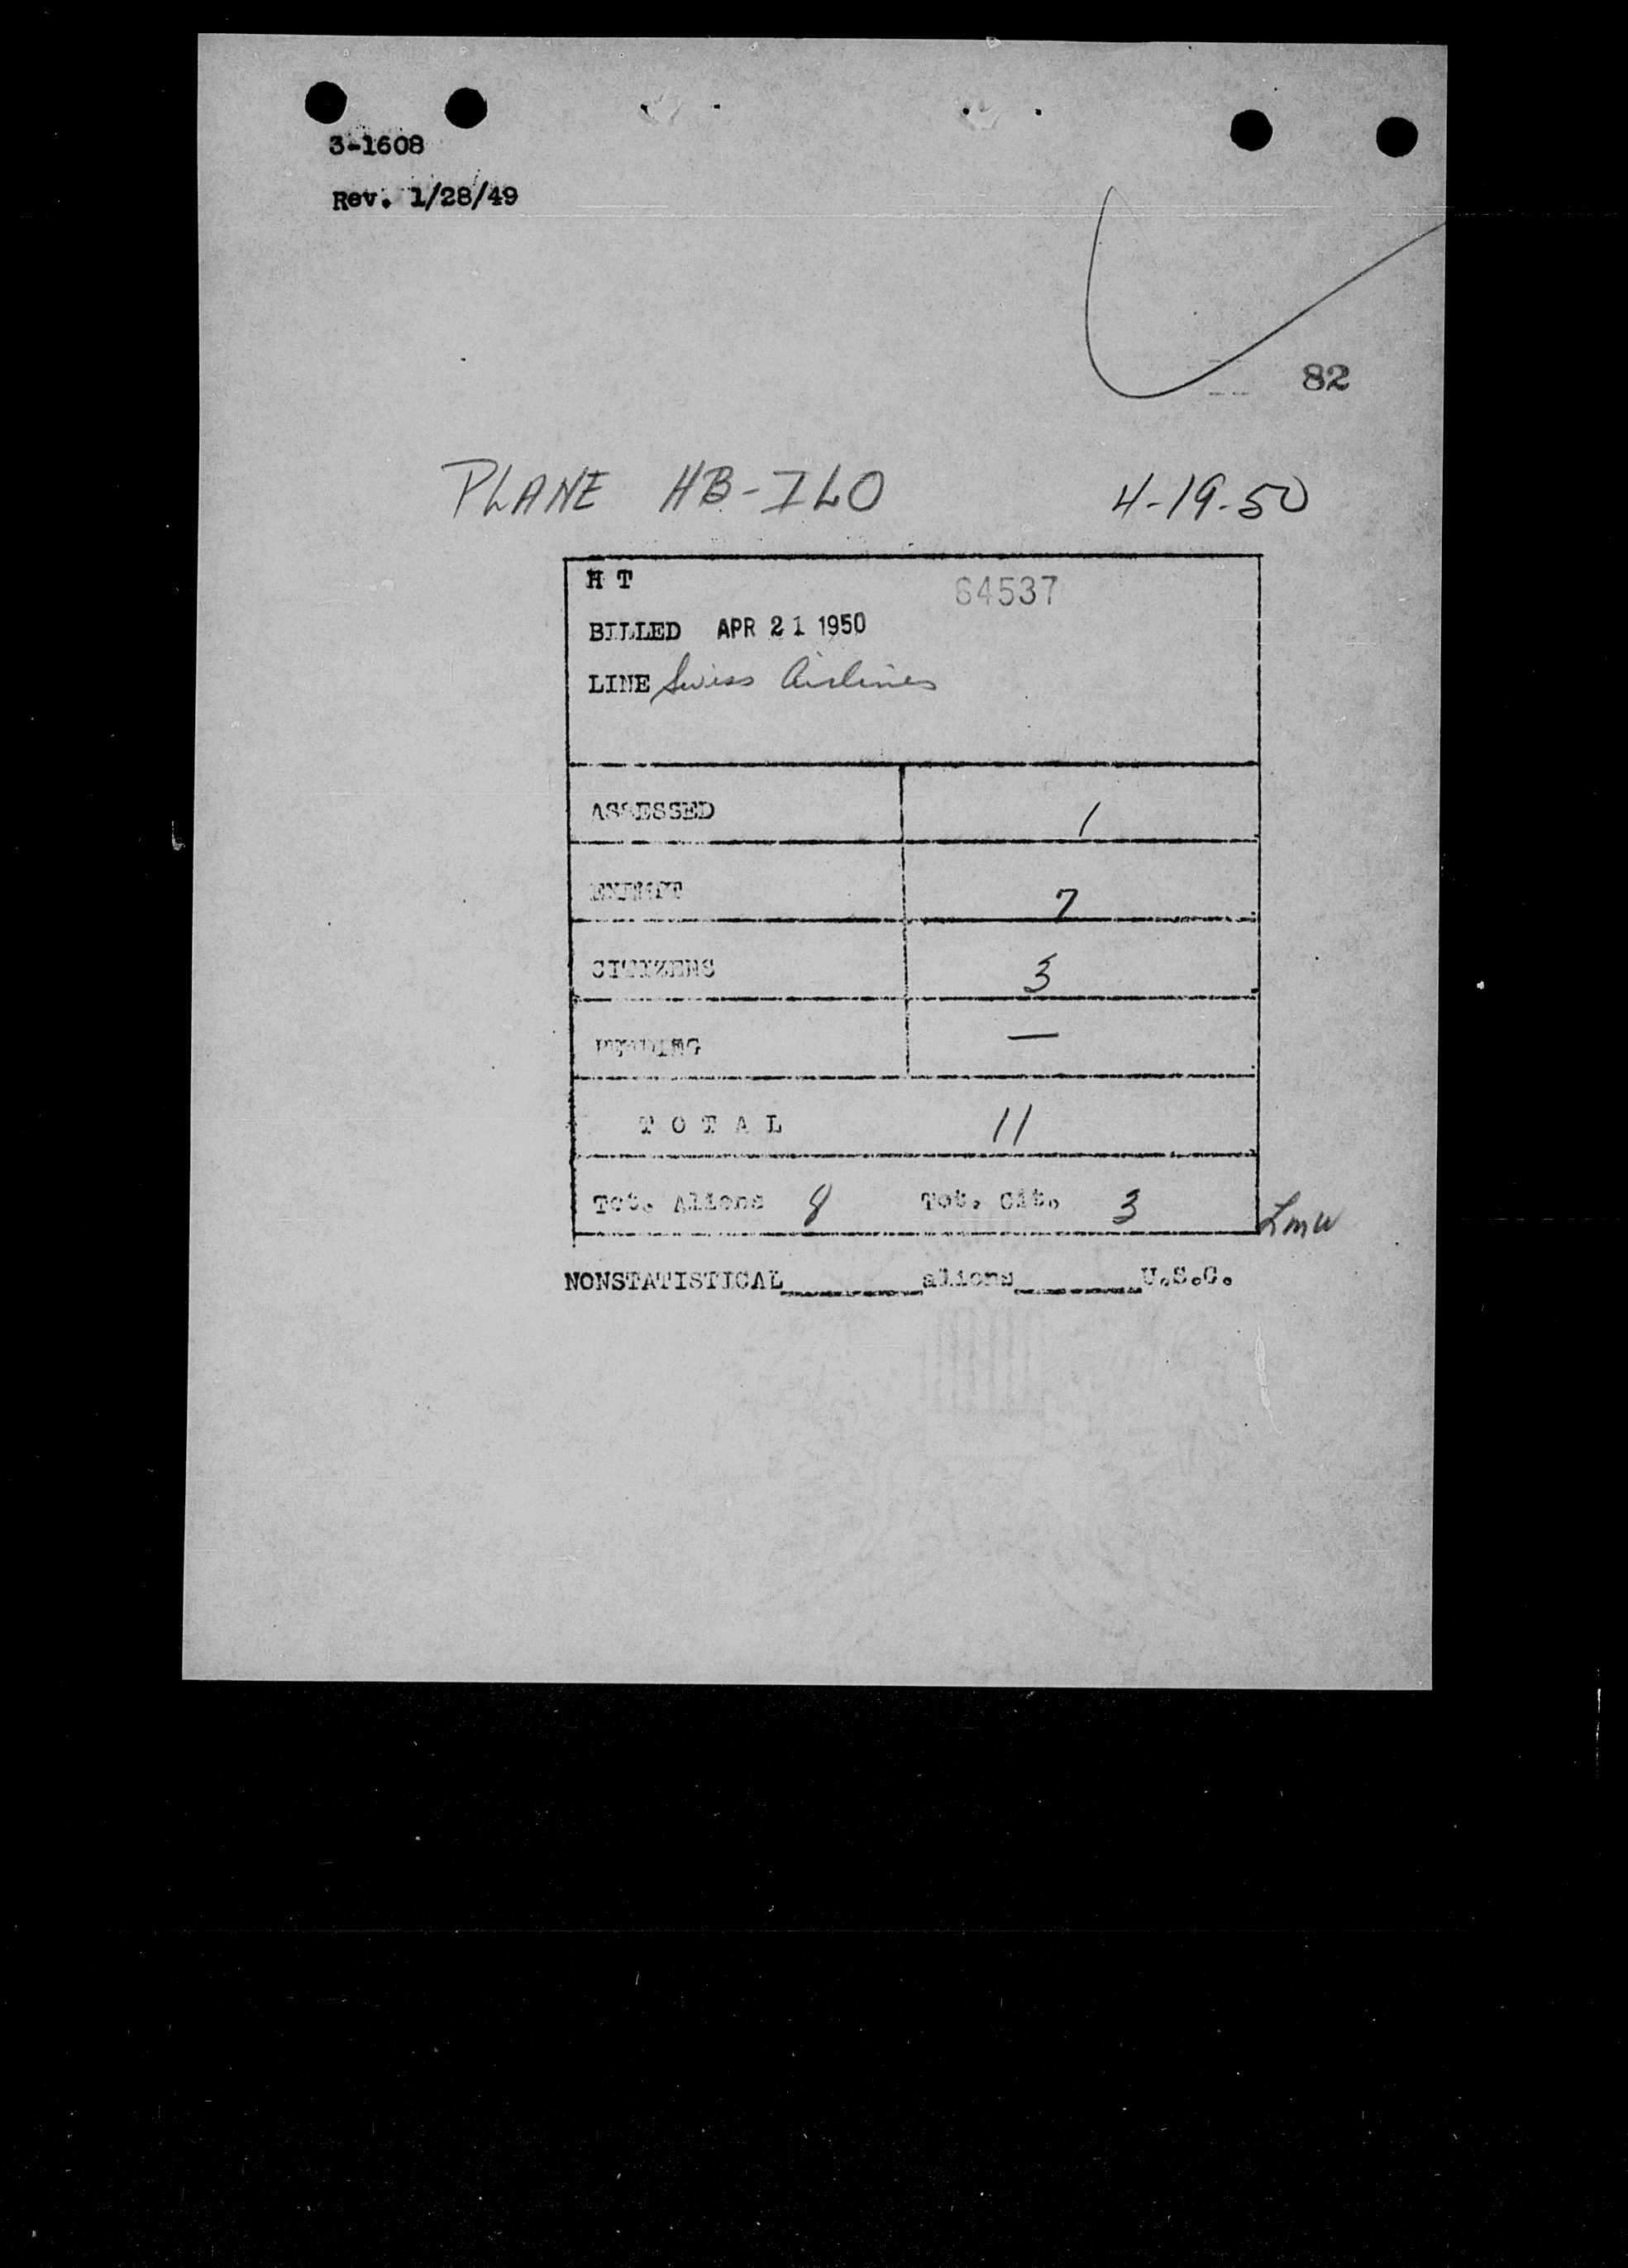 3-1608
Rev. 1/28/49
82
PLANE HB-ILO 4-19-50
H T 64537
BILLED APR 21 1950
LINE Swiss Airlines
ASSESSED 1
EXEMPT 7
CITIZENS 3
PENDING —
TOTAL 11
Tot. Aliens 8 Tot. Cit. 3
Lmw
NONSTATISTICAL________aliens________U.S.C.